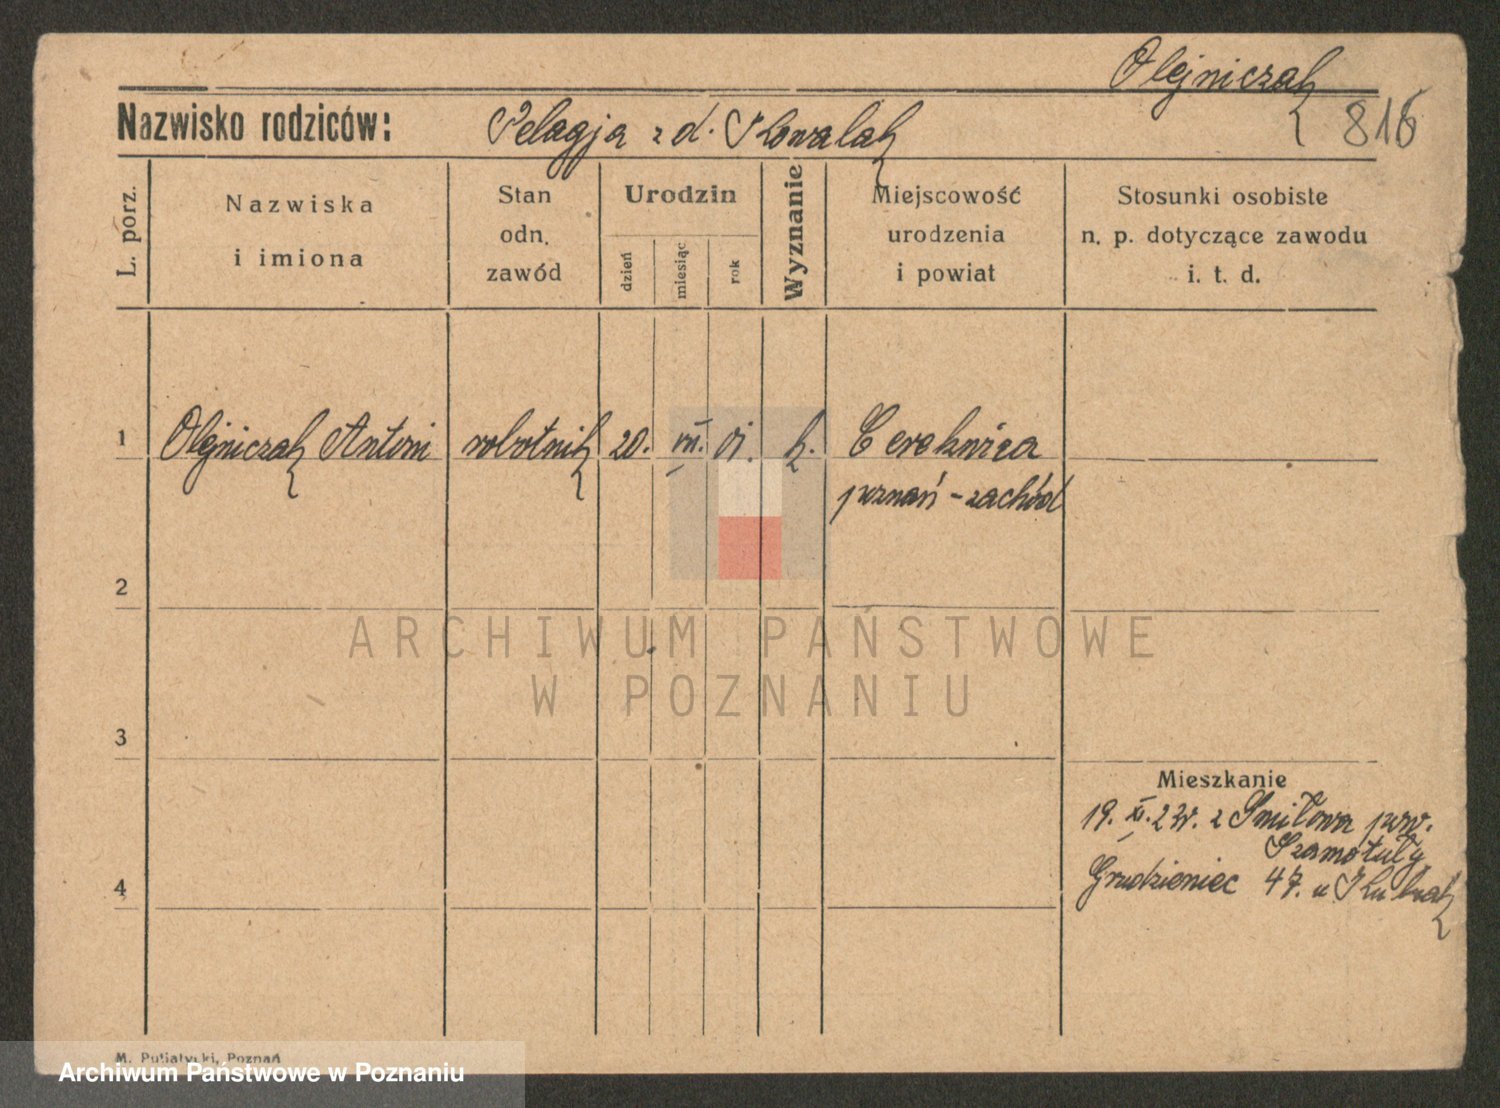 Olejniczak
Nazwisko rodziców: Pelagja z d. Kowalak 816
L. porz.
Nazwiska i imiona
Stan odn. zawód
Urodzin
dzień
miesiąc
rok
Wyznanie
Miejscowość urodzenia i powiat
Stosunki osobiste n. p. dotyczące zawodu i. t. d.
1 Olejniczak Antoni robotnik 20. VII. 01. k. Cerekwica
poznań - zachód
2
ARCHIWUM PAŃSTWOWE
W POZNANIU
3
Mieszkanie
19. XI. 27. z Śmiłowa pow.
Szamotuły
4 Grudzieniec 47. u Kubiak
M. Putiatycki, Poznań
Archiwum Państwowe w Poznaniu